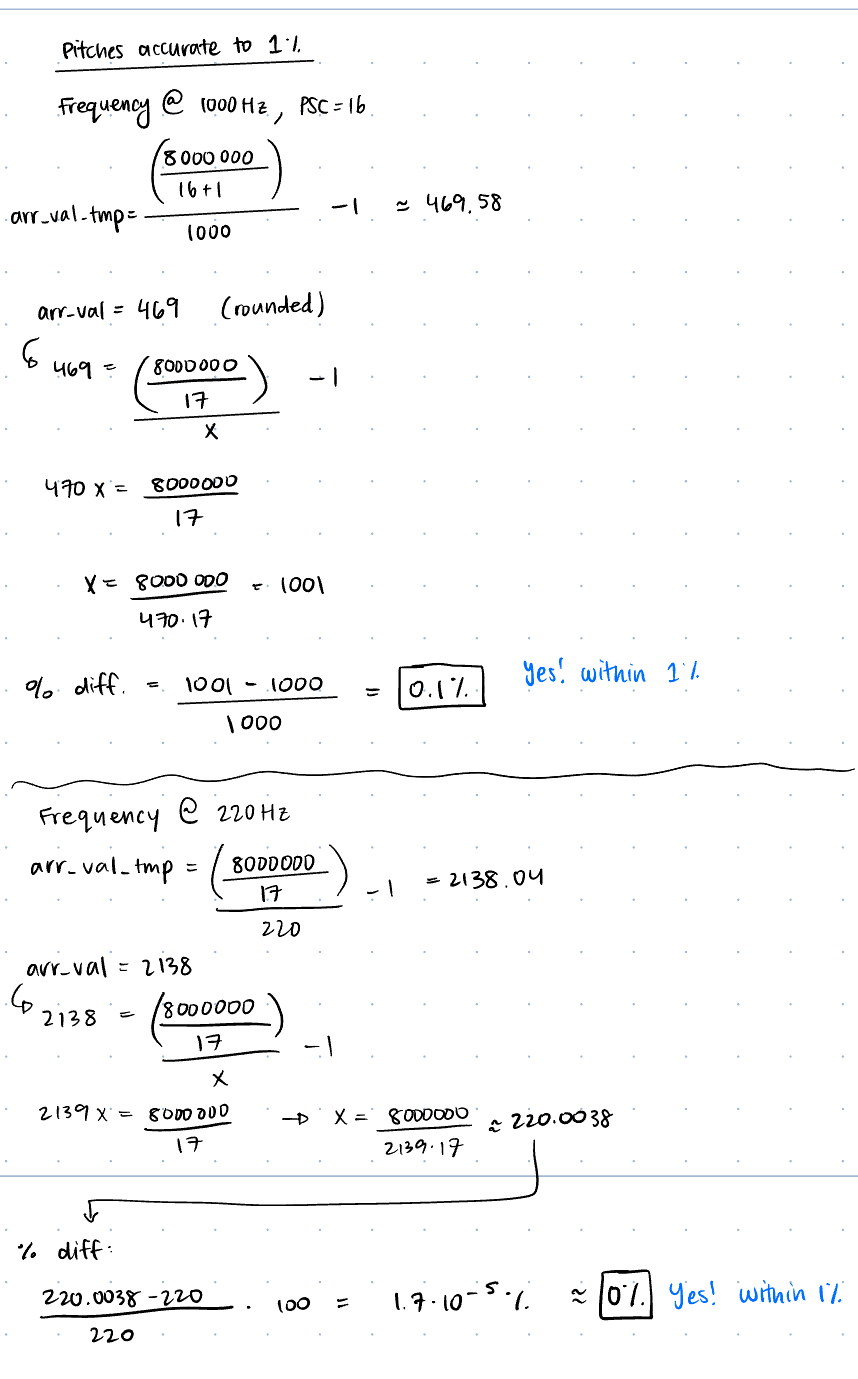 Pitches accurate to 1%
Frequency @ 1000 Hz, PSC = 16
arr_val_tmp = (8000000 / (16+1)) / 1000 - 1 ≈ 469.58
arr_val = 469 (rounded)
↳ 469 = (8000000 / 17) / x - 1
470 x = 8000000 / 17
x = 8000000 / 470·17 = 1001
% diff. = 1001 - 1000 / 1000 = 0.1% Yes! within 1%
Frequency @ 220 Hz
arr_val_tmp = (8000000 / 17) / 220 - 1 = 2138.04
arr_val = 2138
↳ 2138 = (8000000 / 17) / x - 1
2139 x = 8000000 / 17 → x = 8000000 / 2139·17 ≈ 220.0038
% diff:
220.0038 - 220 / 220 · 100 = 1.7·10^-5 % ≈ 0% Yes! within 1%